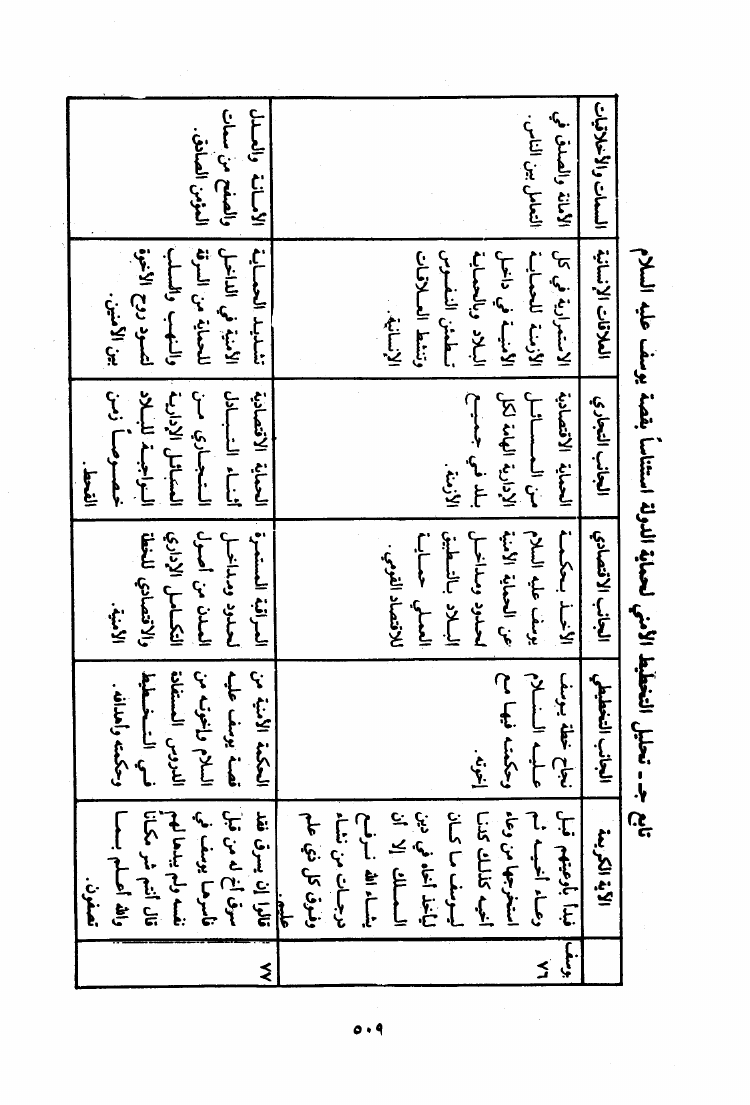 تابع جـ ـ تحليل التخطيط الأمني لحماية الدولة استئناساً بقصة يوسف عليه السلام
الآية الكريمة
الجانب التخطيطي
الجانب الاقتصادي
الجانب التجاري
العلاقات الإنسانية
السمات والأخلاقيات
يوسف
٧٦
فبدأ بأوعيتهم قبل
وعاء أخيه ثم
استخرجها من وعاء
أخيه كذلك كدنا
ليوسف ما كان
ليأخذ أخاه في دين
الملك إلا أن
يشاء الله نرفع
درجات من نشاء
وفوق كل ذي علم
عليم.
نجاح خطة يوسف
عليه السلام
وحكمته فيها مع
إخوته.
الأخذ بحكمة
يوسف عليه السلام
عن الحماية الأمنية
لحدود ومداخل
البلاد بالتطبيق
العملي حماية
للاقتصاد القومي.
الحماية الاقتصادية
من المسائل
الإدارية الهامة لكل
بلد في جميع
الأزمنة.
الاستمرارية في كل
الأزمنة للحماية
الأمنية في داخل
البلاد وبالحماية
تطمئن النفوس
وتنشط العلاقات
الإنسانية.
الأمانة والصدق في
التعامل بين الناس.
٧٧
قالوا إن يسرق فقد
سرق أخ له من قبل
فأسرها يوسف في
نفسه ولم يبدها لهم
قال أنتم شر مكاناً
والله أعلم بما
تصفون.
الحكمة الأمنية من
قصة يوسف عليه
السلام وإخوته من
الدروس المستفادة
في التخطيط
وحكمته وأهدافه.
المراقبة المستمرة
لحدود ومداخل
المدن من أصول
التكامل الإداري
والاقتصادي للخطة
الأمنية.
الحماية الاقتصادية
أثناء التبادل
التجاري من
المسائل الإدارية
الواجبة للبلاد
خصوصاً زمن
القحط.
تشديد الحماية
الأمنية في الداخل
للحماية من السرقة
والنهب والسلب
لتعود روح الأخوة
بين الآمنين.
الأمانة والعدل
والصفح من سمات
المؤمن الصادق.
٥٠٩